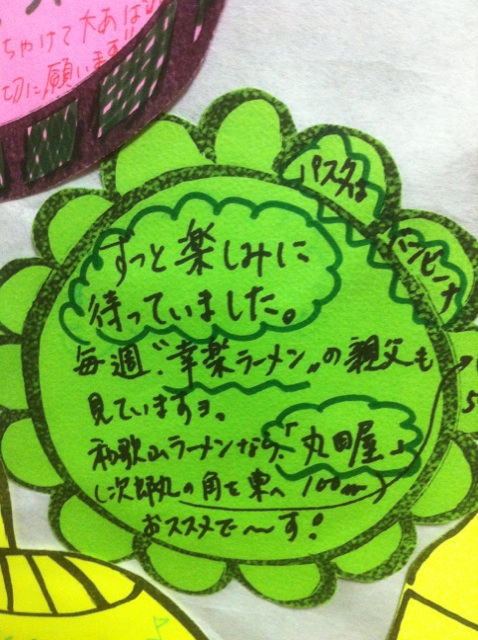 ちゃけて大あば
切に願います!!
パスタは
ずっと楽しみに
待っていました。
毎週〝幸楽ラーメン〟の親父も
見ていますヨ。
和歌山ラーメンなら、「丸田屋」
(次郎丸の角を東へ100m)
おススメで〜す!